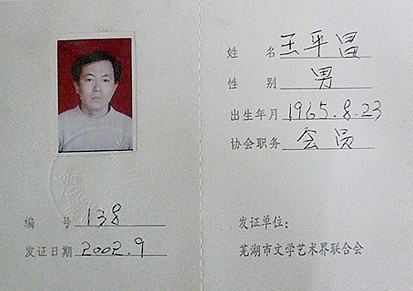 姓名 王平昌
性别 男
出生年月 1965.8.23
协会职务 会员
编号 138
发证日期 2002.9
发证单位：
芜湖市文学艺术界联合会